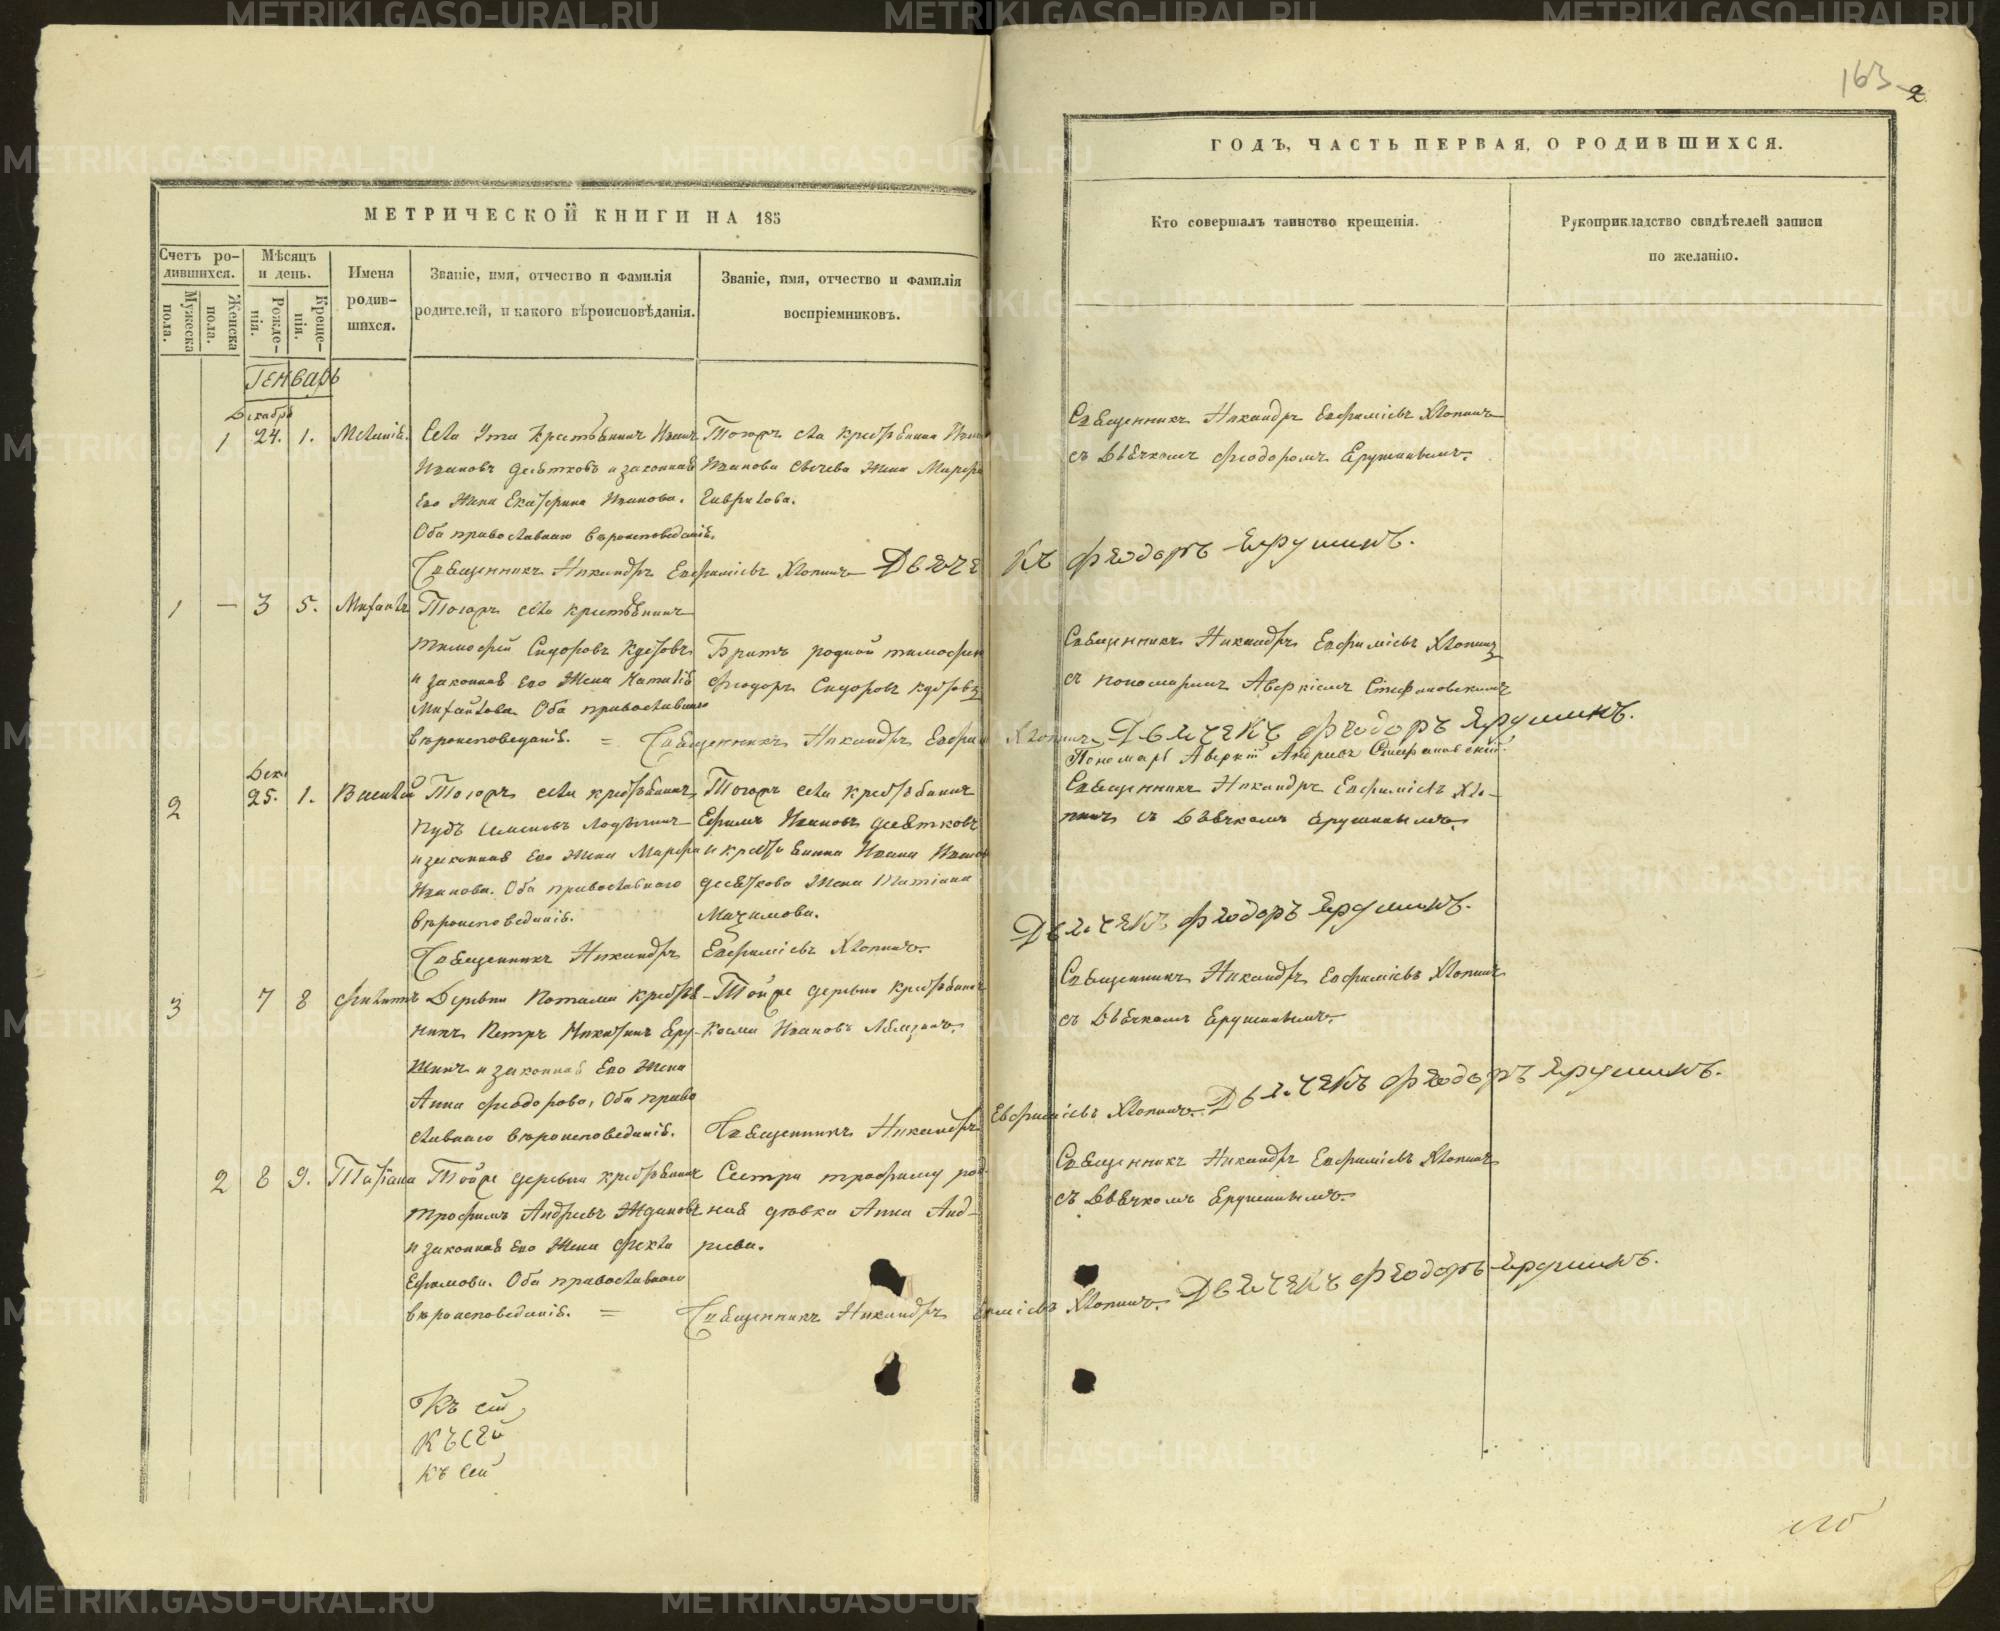 163 2
МЕТРИЧЕСКОЙ КНИГИ НА 185
ГОДЪ, ЧАСТЬ ПЕРВАЯ, О РОДИВШИХСЯ.
Счетъ ро-
дившихся.
Мужеска
пола.
Женска
пола.
Мѣсяцъ
и день.
Рожде-
нія.
Креще-
нія.
Имена
родив-
шихся.
Званіе, имя, отчество и фамилія
родителей, и какого вѣроисповѣданія.
Званіе, имя, отчество и фамилія
воспріемниковъ.
Кто совершалъ таинство крещенія.
Рукоприкладство свидѣтелей записи
по желанію.
Генварь
Декабрь
1 24. 1. Меланія. Села Ута крестьянинъ Иванъ
Ивановъ Десятковъ и законная
Его Жена Екатерина Иванова.
Оба православнаго вѣроисповеданія.
Тогожъ села крестьянина Ивана
Иванова Жена Марфа
Гаврилова.
Священникъ Никандръ Евфиміевъ Хлопинъ
съ Дьячкомъ Феодоромъ Ерушинымъ.
Священникъ Никандръ Евфиміевъ Хлопинъ Дьячекъ Феодоръ Ерушинъ.
1 — 3 5. Михаилъ Тогожъ села крестьянинъ
Тимофей Сидоровъ
и законная его Жена Наталія
Михайлова Оба православнаго
вѣроисповеданія. =
Братъ родной Тимофея
Феодоръ Сидоровъ
Священникъ Никандръ Евфиміевъ Хлопинъ
съ пономаремъ Аверкіемъ Стефановскимъ
Священникъ Никандръ Евфим Хлопинъ. Дьячекъ Феодоръ Ерушинъ.
Пономарь Аверкій Андреевъ Стефановскій.
Дек.
2 25. 1. Василій Тогожъ села крестьянинъ
и законная его Жена Марфа
Иванова. Оба православнаго
вѣроисповеданія.
Тогожъ села крестьянинъ
Ефимъ Ивановъ Десятковъ
и крестьянина Ивана Иванова
Десяткова Жена Татіана
Священникъ Никандръ Евфиміевъ Хло-
пинъ съ Дьячкомъ Ерушинымъ.
Священникъ Никандръ Евфиміевъ Хлопинъ. Дьячекъ Феодоръ Ерушинъ.
3 7 8 Филипъ Деревни крестья-
нинъ Петръ Никитинъ Еру-
шинъ и законная Его Жена
Анна Феодорова, Оба право
славнаго вѣроисповеданія.
Тойже деревни крестьянинъ
Косма Ивановъ
Священникъ Никандръ Евфиміевъ Хлопинъ
съ Дьячкомъ Ерушинымъ.
Священникъ Никандръ Евфиміевъ Хлопинъ. Дьячекъ Феодоръ Ерушинъ.
2 8 9. Татіана Тойже деревни крестьянинъ
Трофимъ Андреевъ Ждановъ
и законная Его Жена Фекла
Ефимова. Оба православнаго
вѣроисповеданія. =
Сестра Трофиму род
ная девка Анна Анд-
реева.
Священникъ Никандръ Евфиміевъ Хлопинъ
съ Дьячкомъ Ерушинымъ.
Священникъ Никандръ Хлопинъ. Дьячекъ Феодоръ Ерушинъ.
Къ сей
Къ сей
Къ сей
METRIKI.GASO-URAL.RU